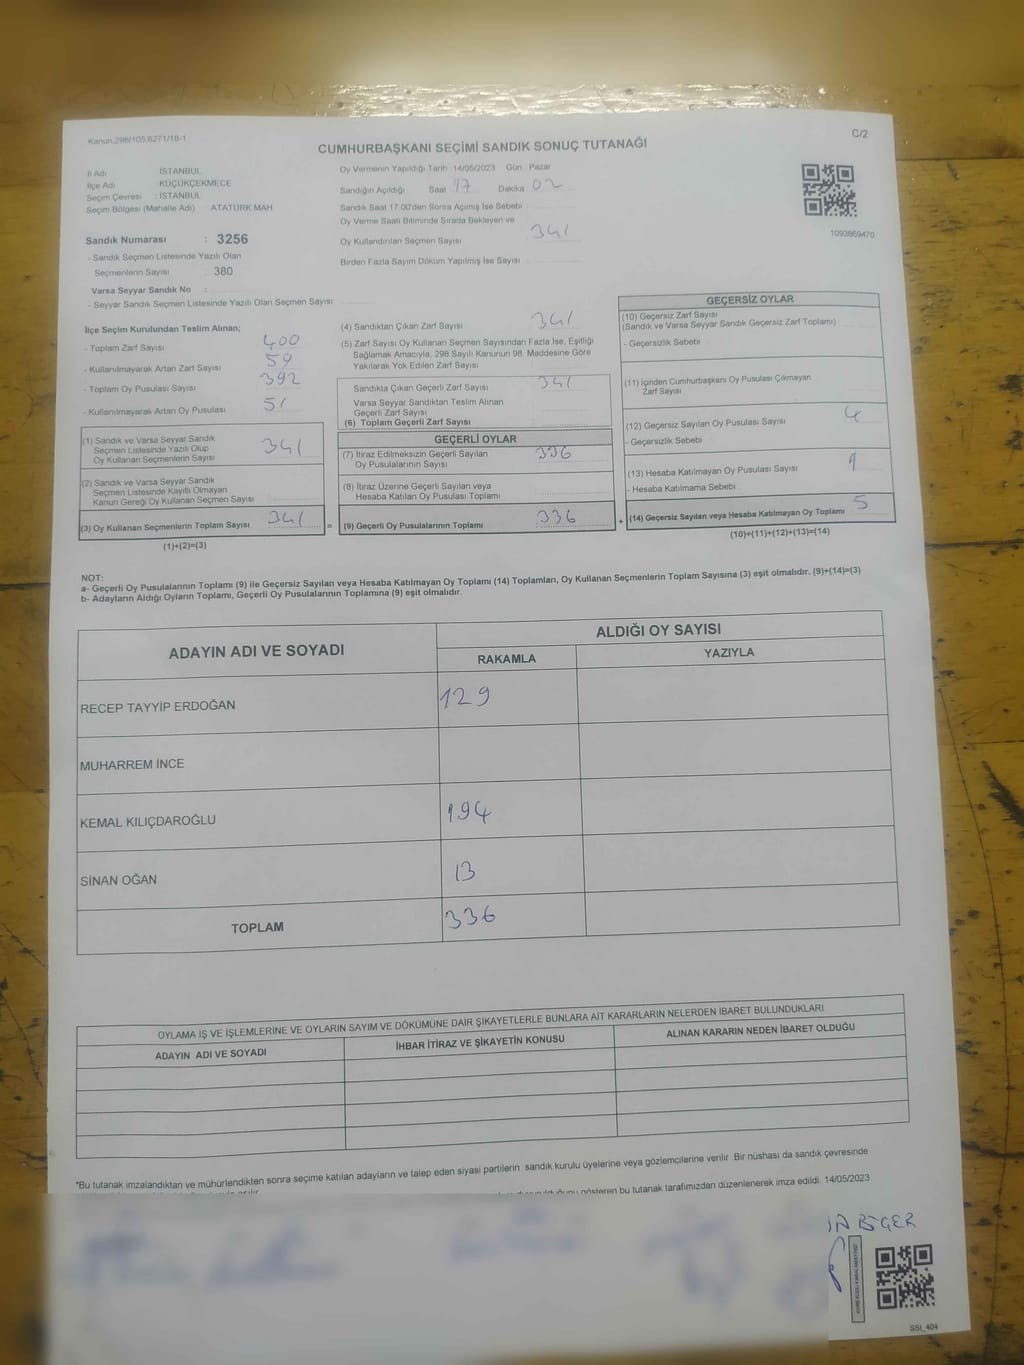 Kanun:298/105,6271/18-1
C/2
CUMHURBAŞKANI SEÇİMİ SANDIK SONUÇ TUTANAĞI
İl Adı : İSTANBUL
İlçe Adı : KÜÇÜKÇEKMECE
Seçim Çevresi : İSTANBUL
Seçim Bölgesi (Mahalle Adı) : ATATÜRK MAH
Sandık Numarası : 3256
- Sandık Seçmen Listesinde Yazılı Olan
Seçmenlerin Sayısı : 380
Varsa Seyyar Sandık No :
- Seyyar Sandık Seçmen Listesinde Yazılı Olan Seçmen Sayısı
Oy Vermenin Yapıldığı Tarih : 14/05/2023 Gün : Pazar
Sandığın Açıldığı Saat 17 Dakika 02
Sandık Saat 17:00'den Sonra Açımış İse Sebebi
Oy Verme Saati Bitiminde Sırada Bekleyen ve
Oy Kullandırılan Seçmen Sayısı 341
Birden Fazla Sayım Döküm Yapılmış İse Sayısı
1093869470
İlçe Seçim Kurulundan Teslim Alınan;
- Toplam Zarf Sayısı 400
- Kullanılmayarak Artan Zarf Sayısı 59
- Toplam Oy Pusulası Sayısı 392
- Kullanılmayarak Artan Oy Pusulası 51
(1) Sandık ve Varsa Seyyar Sandık
Seçmen Listesinde Yazılı Olup
Oy Kullanan Seçmenlerin Sayısı 341
(2) Sandık ve Varsa Seyyar Sandık
Seçmen Listesinde Kayıtlı Olmayan
Kanun Gereği Oy Kullanan Seçmen Sayısı
(3) Oy Kullanan Seçmenlerin Toplam Sayısı 341 =
(1)+(2)=(3)
(4) Sandıktan Çıkan Zarf Sayısı 341
(5) Zarf Sayısı Oy Kullanan Seçmen Sayısından Fazla İse, Eşitliği
Sağlamak Amacıyla, 298 Sayılı Kanunun 98. Maddesine Göre
Yakılarak Yok Edilen Zarf Sayısı
Sandıkta Çıkan Geçerli Zarf Sayısı 341
Varsa Seyyar Sandıktan Teslim Alınan
Geçerli Zarf Sayısı
(6) Toplam Geçerli Zarf Sayısı
GEÇERLİ OYLAR
(7) İtiraz Edilmeksizin Geçerli Sayılan
Oy Pusulalarının Sayısı 336
(8) İtiraz Üzerine Geçerli Sayılan veya
Hesaba Katılan Oy Pusulası Toplamı
(9) Geçerli Oy Pusulalarının Toplamı 336 +
GEÇERSİZ OYLAR
(10) Geçersiz Zarf Sayısı
(Sandık ve Varsa Seyyar Sandık Geçersiz Zarf Toplamı)
- Geçersizlik Sebebi
(11) İçinden Cumhurbaşkanı Oy Pusulası Çıkmayan
Zarf Sayısı
(12) Geçersiz Sayılan Oy Pusulası Sayısı 4
- Geçersizlik Sebebi
(13) Hesaba Katılmayan Oy Pusulası Sayısı 1
- Hesaba Katılmama Sebebi
(14) Geçersiz Sayılan veya Hesaba Katılmayan Oy Toplamı 5
(10)+(11)+(12)+(13)=(14)
NOT:
a- Geçerli Oy Pusulalarının Toplamı (9) ile Geçersiz Sayılan veya Hesaba Katılmayan Oy Toplamı (14) Toplamları, Oy Kullanan Seçmenlerin Toplam Sayısına (3) eşit olmalıdır. (9)+(14)=(3)
b- Adayların Aldığı Oyların Toplamı, Geçerli Oy Pusulalarının Toplamına (9) eşit olmalıdır.
ADAYIN ADI VE SOYADI
ALDIĞI OY SAYISI
RAKAMLA YAZIYLA
RECEP TAYYİP ERDOĞAN 129
MUHARREM İNCE
KEMAL KILIÇDAROĞLU 194
SİNAN OĞAN 13
TOPLAM 336
OYLAMA İŞ VE İŞLEMLERİNE VE OYLARIN SAYIM VE DÖKÜMÜNE DAİR ŞİKAYETLERLE BUNLARA AİT KARARLARIN NELERDEN İBARET BULUNDUKLARI
ADAYIN ADI VE SOYADI İHBAR İTİRAZ VE ŞİKAYETİN KONUSU ALINAN KARARIN NEDEN İBARET OLDUĞU
*Bu tutanak imzalandıktan ve mühürlendikten sonra seçime katılan adayların ve talep eden siyasi partilerin sandık kurulu üyelerine veya gözlemcilerine verilir .Bir nüshası da sandık çevresinde
gösteren bu tutanak tarafımızdan düzenlenerek imza edildi. 14/05/2023
SSI_404